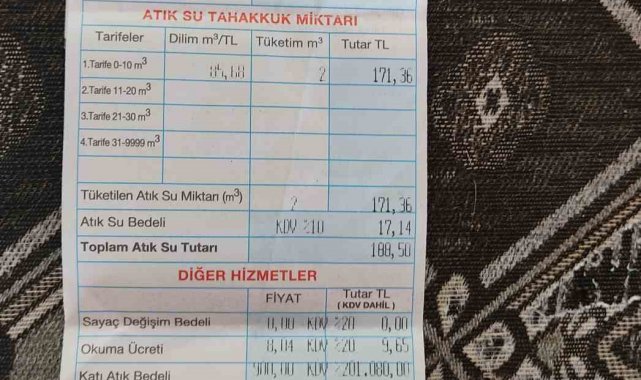 ATIK SU TAHAKKUK MİKTARI
Tarifeler Dilim m³/TL Tüketim m³ Tutar TL
1.Tarife 0-10 m³ 2 171,36
2.Tarife 11-20 m³
3.Tarife 21-30 m³
4.Tarife 31-9999 m³
Tüketilen Atık Su Miktarı (m³) 2 171,36
Atık Su Bedeli KDV %10 17,14
Toplam Atık Su Tutarı 188,50
DİĞER HİZMETLER
FİYAT Tutar TL
(KDV DAHİL)
Sayaç Değişim Bedeli 0,00 KDV %20 0,00
Okuma Ücreti 8,04 KDV %20 9,65
Katı Atık Bedeli 900,00 KDV %201.080,00